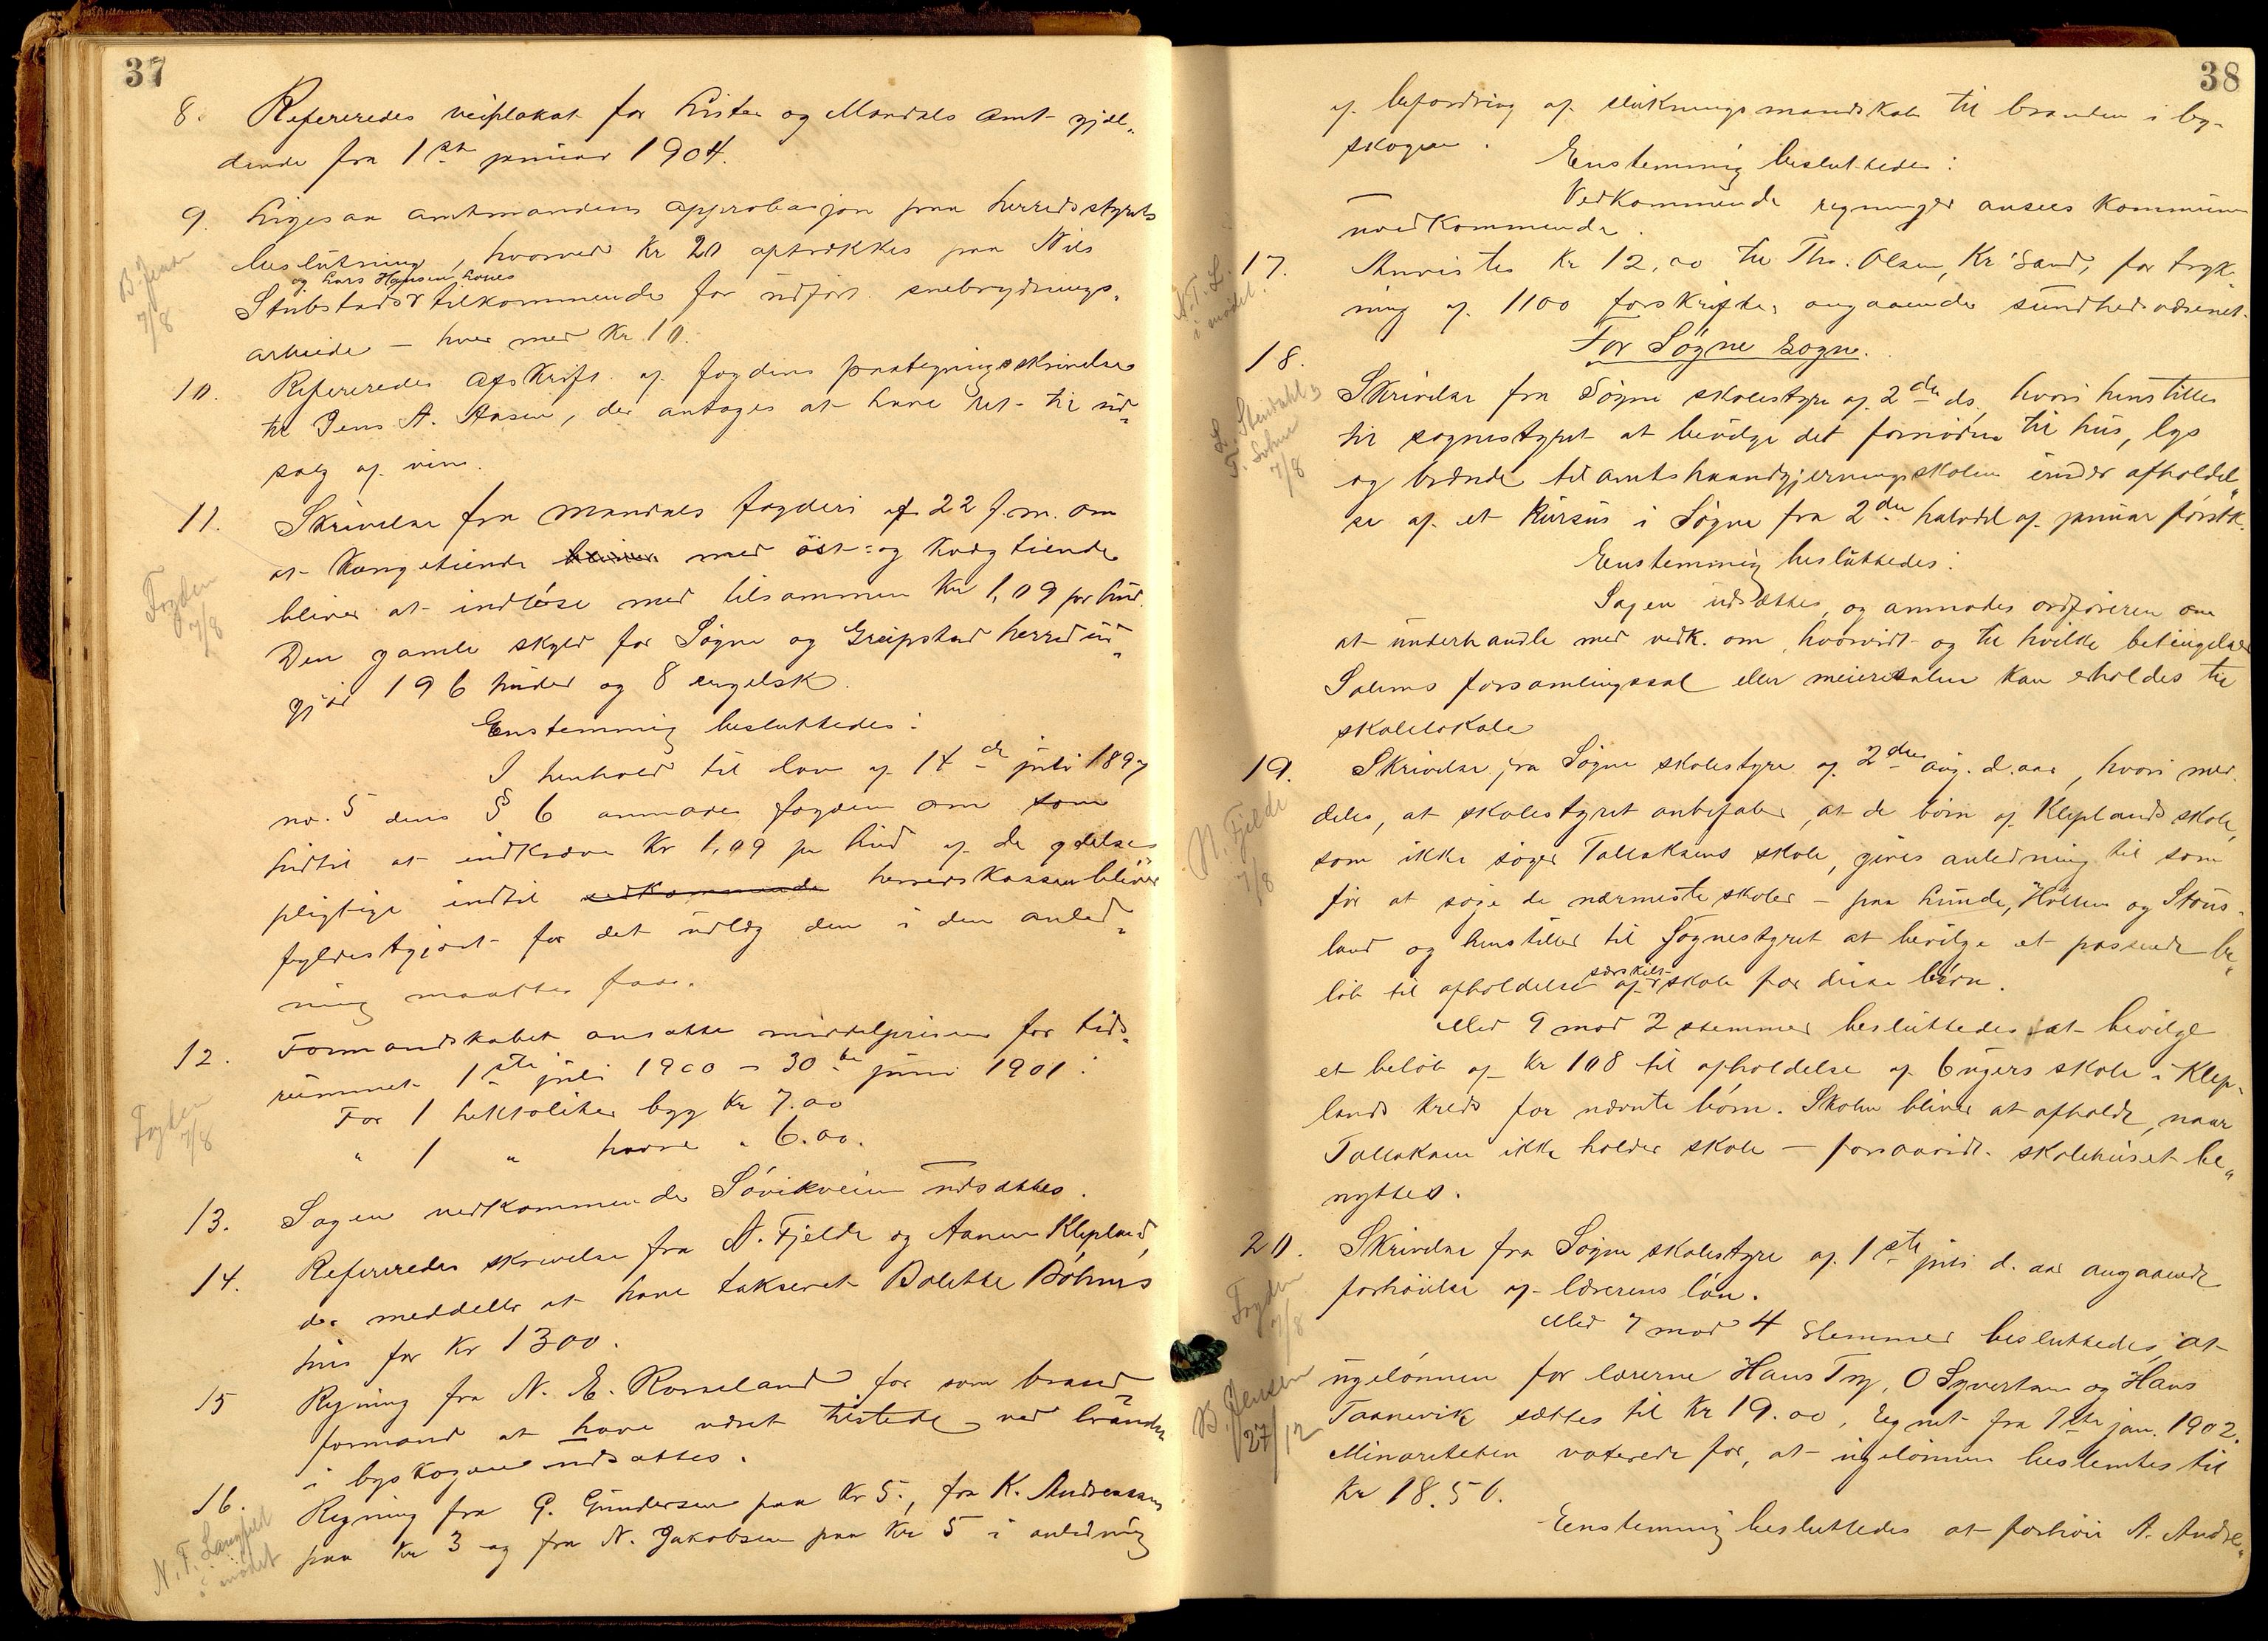 37
8. Refereredes veiplakat for Lister og Mandals amt gjæl„
dende fra 1ste januar 1904.
9. Ligesaa amtmandens approbasjon paa herredsstyrets
beslutning, hvorved Kr 20 aftrækkes paa Nils
og Lars Hansen Lones
Stubstads tilkommende for udført snebrydnings„
arbeide – hver med Kr 10.
B. Jensen
7/8
10. Refereredes afskrift af fogdens paategningsskrivelse
til Jens A. Aasen, der antages at have ret til ud„
salg af vin.
11. Skrivelse fra Mandals fogderi af 22 f.m. om
at Kongetiende med ost- og Kvægtiende
bliver at indløse med tilsammen Kr 1,09 pr hud.
Den gamle skyld for Søgne og Greipstad herred ud„
gjør 196 huder og 8 engelsk.
Fogden
7/8
Enstemmig besluttedes:
I henhold til lov af 14de juli 1897
no. 5 dens § 6 anmodes fogden om som
hidtil at indkræve Kr 1,09 pr hud af de ydelses
pligtige indtil vedkommende herredskassen bliver
fyldestgjort for det udlæg den i den anled„
ning maatte faa.
12. Formandskabet ansatte middelprisen for tids„
rummet 1ste juli 1900 – 30te juni 1901:
For 1 hektoliter byg Kr 7.00
„ 1 „ havre „ 6.00.
Fogden
7/8
13. Sagen vedkommende Søvikveien udsættes.
14. Refereredes skrivelse fra N. Fjelde og Aanen Klepland,
der meddeler at have takseret Bolette Bøhns
hus for Kr 1300.
15 Regning fra N. E. Rosseland for som brand„
formand at have været tilstede ved branden
i byskogen udsattes.
16. Regning fra G. Gundersen paa Kr 5., fra K. Andreassen
paa Kr 3 og fra N. Jakobsen paa Kr 5 i anledning
N. F. Langfeldt
i mødet
38
af befordring af slukningsmandskab til branden i by-
skogen.
Enstemmig besluttedes:
Vedkommende regninger ansees Kommunen
uvedkommende.
17. Anvistes Kr 12,00 til Ths. Olsen, Kr'sand, for tryk„
ning af 1100 forskrifter angaaende sundhedsvæsenet.
N.F.L.
i mødet.
For Søgne sogn.
18. Skrivelse fra Søgne skolestyre af 2de ds, hvori henstilles
til sognestyret at bevilge det fornødne til hus, lys
og brænde til amtshaandgjerningsskolen under afholdel„
se af et Kursus i Søgne fra 2den halvdel af januar førstk.
7/8
Eenstemmig besluttedes:
Sagen udsættes, og anmodes ordføreren om
at underhandle med vedk. om, hvorvidt og til hvilke betingelser
Salems forsamlingssal eller meierisalen kan erholdes til
skolelokale
19. Skrivelse fra Søgne skolestyre af 2den aug. d. aar, hvori med„
deles, at skolestyret anbefaler, at de børn af Kleplands skole,
som ikke søger Tallaksens skole, gives anledning til som
før at søge de nærmeste skoler – paa Lunde, Høllen og Stous„
land og henstiller til Sognestyret at bevilge et passende be„
særskilt
løb til afholdelse af skole for disse børn.
N. Fjelde
7/8
Med 9 mod 2 stemmer besluttedes at bevilge
et beløb af Kr 108 til afholdelse af 6 ugers skole i Klep„
lands kreds for nævnte børn. Skolen bliver at afholde, naar
Tallaksen ikke holder skole – forsaavidt skolehuset be„
nyttes.
20. Skrivelse fra Søgne skolestyre af 1ste juli d. aar angaaende
forhøielse af lærerens løn.
Fogden
7/8
Med 7 mod 4 stemmer besluttedes, at
ugelønnen for lærerne Hans Try, O Syvertsen og Hans
Taanevik sættes til Kr 19.00, regnet fra 1ste jan. 1902.
Minoriteten voterede for, at ugelønnen bestemtes til
Kr 18.50.
B. Jensen
27/12
Eenstemmig besluttedes at forhøie A. Andre„